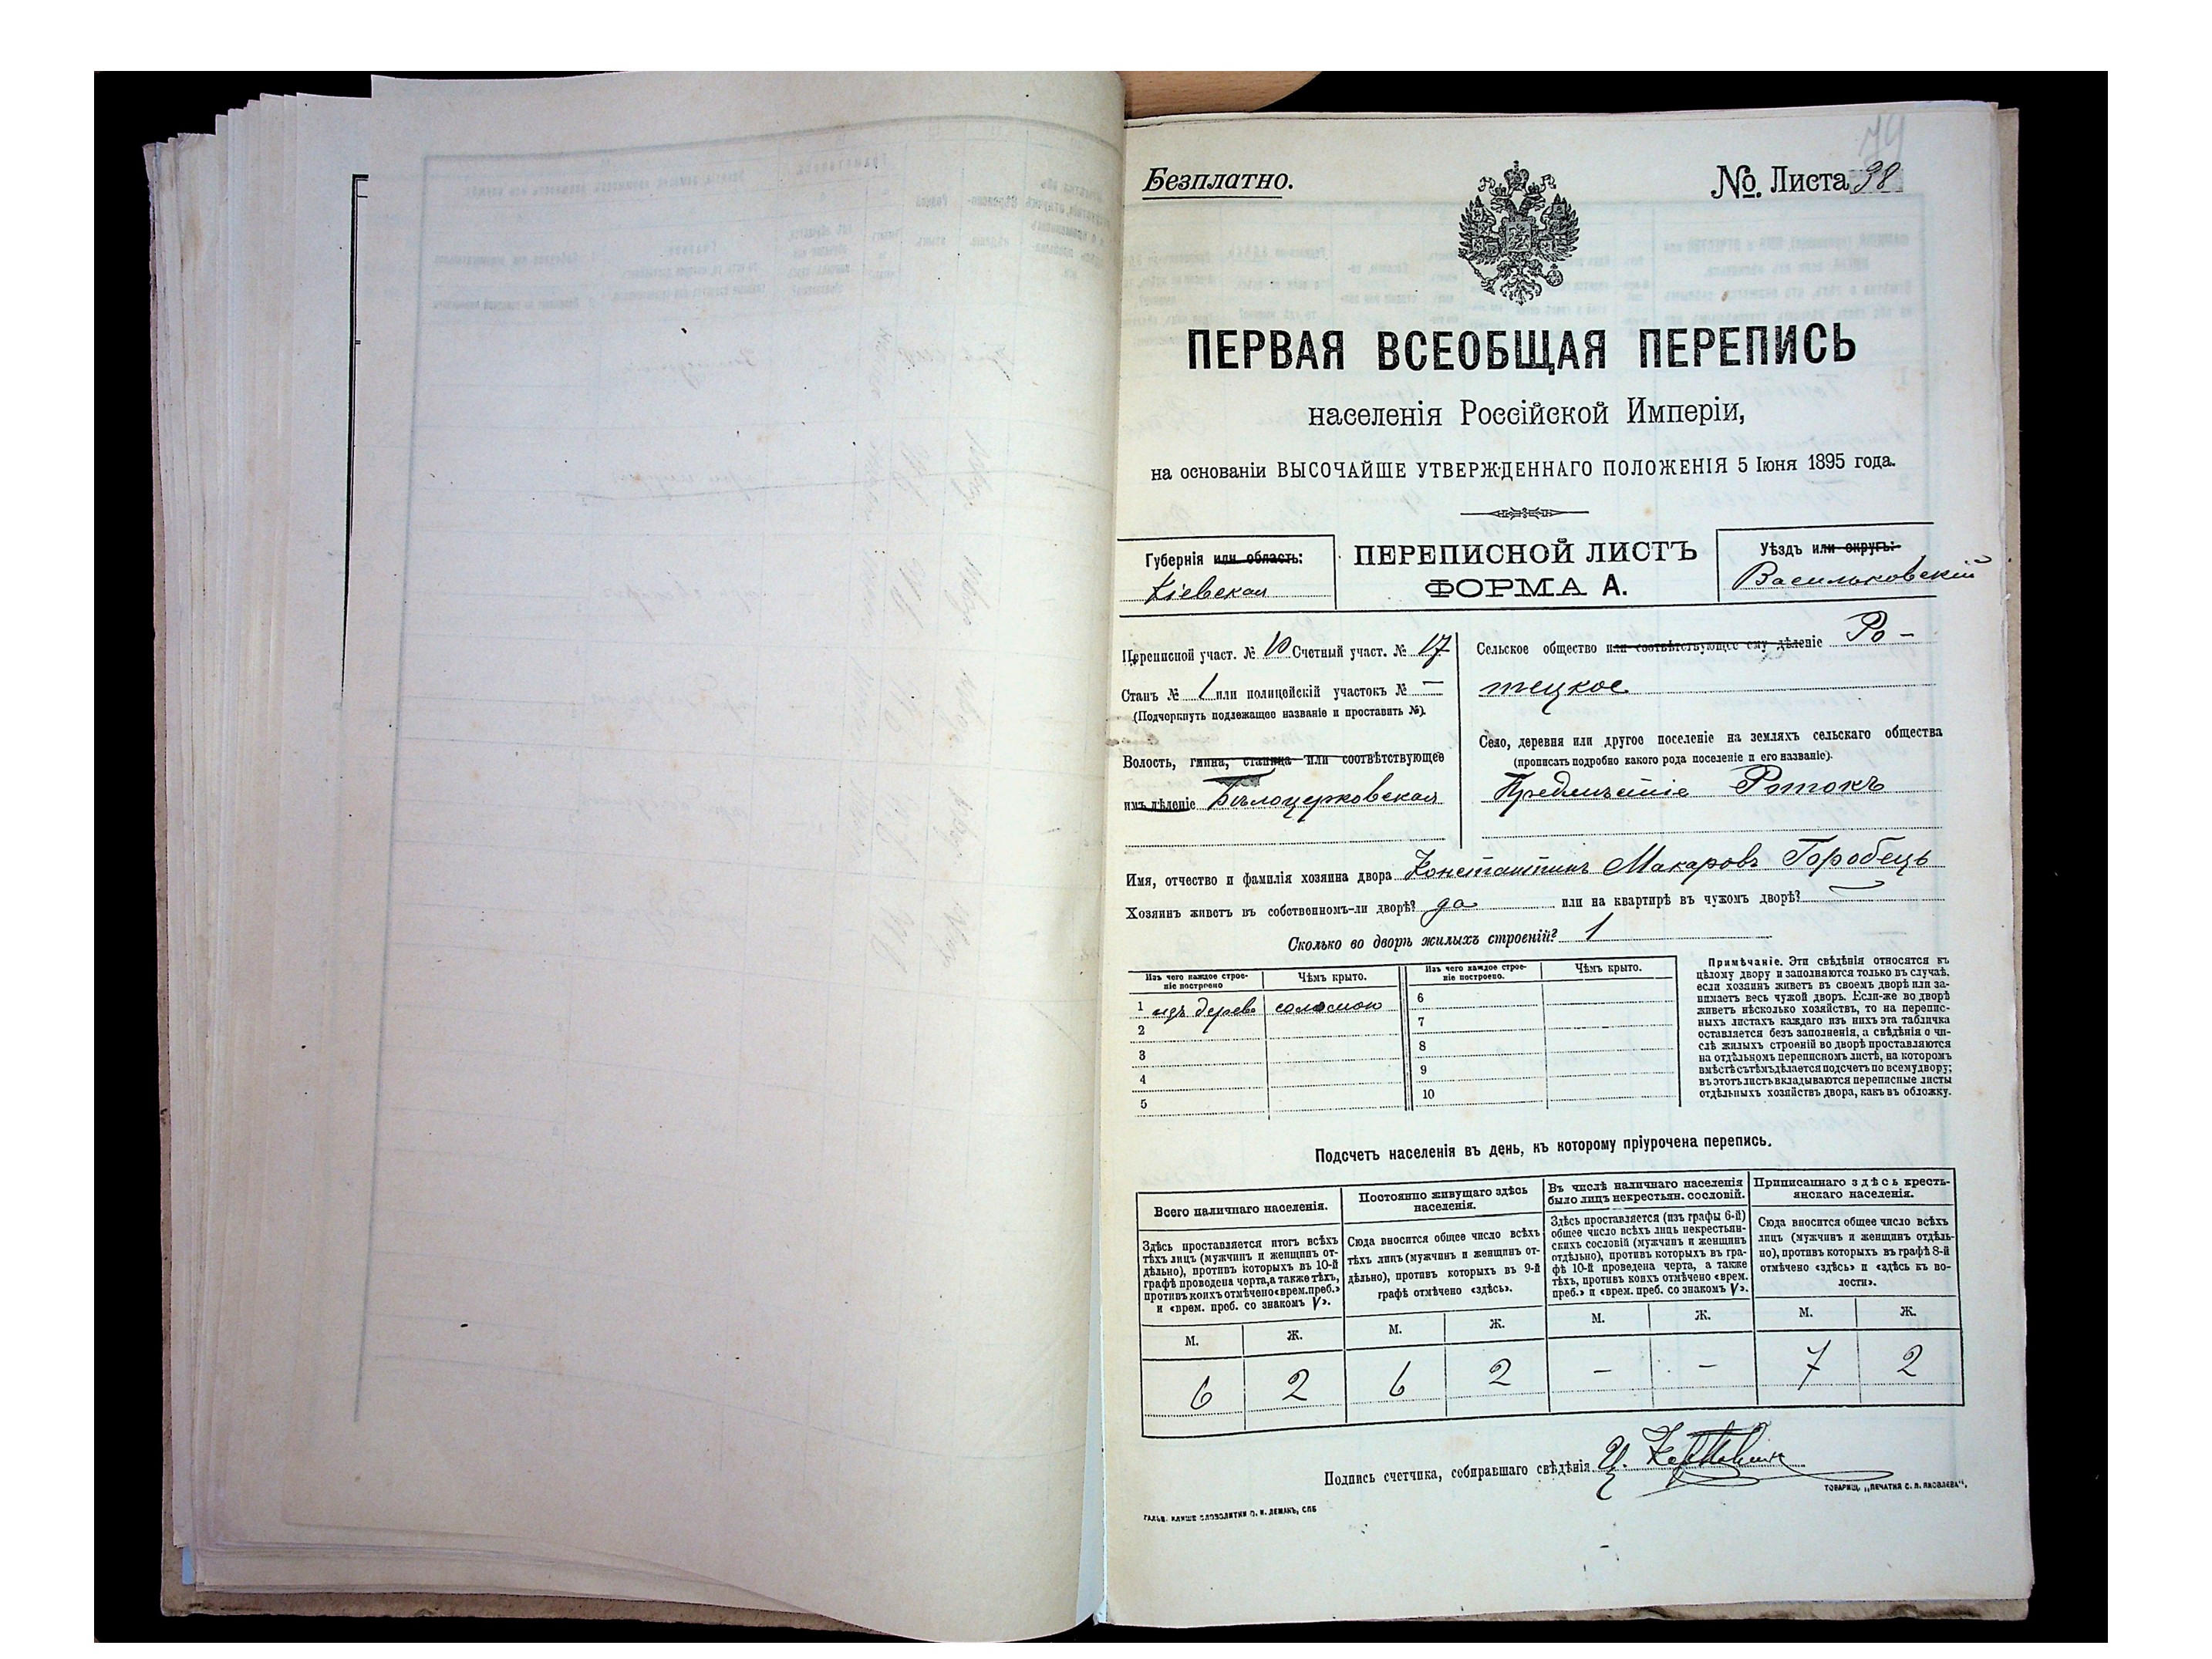 79
Безплатно.
№ Листа 38
ПЕРВАЯ ВСЕОБЩАЯ ПЕРЕПИСЬ
населенія Россійской Имперіи,
на основаніи ВЫСОЧАЙШЕ УТВЕРЖДЕННАГО ПОЛОЖЕНІЯ 5 Іюня 1895 года.
Губернія или область:
Кіевская
ПЕРЕПИСНОЙ ЛИСТЪ
ФОРМА А.
Уѣздъ или округъ:
Васильковскій
Переписной участ. № 10 Счетный участ. № 17
Станъ № 1 или полицейскій участокъ № —
(Подчеркнуть подлежащее названіе и проставить №).
Волость, гмина, станица или соотвѣтствующее
имъ дѣленіе Бѣлоцерковская
Сельское общество или соотвѣтствующее ему дѣленіе Ро-
тецкое
Село, деревня или другое поселеніе на земляхъ сельскаго общества
(прописать подробно какого рода поселеніе и его названіе).
Предмѣстіе Ротокъ
Имя, отчество и фамилія хозяина двора Константинъ Макаровъ Горобець
Хозяинъ живетъ въ собственномъ-ли дворѣ? да или на квартирѣ въ чужомъ дворѣ? —
Сколько во дворѣ жилыхъ строеній? 1
Изъ чего каждое строе-
ніе построено
Чѣмъ крыто.
Изъ чего каждое строе-
ніе построено.
Чѣмъ крыто.
1 изъ дерева соломою 6
2 7
3 8
4 9
5 10
Примѣчаніе. Эти свѣдѣнія относятся къ
цѣлому двору и заполняются только въ случаѣ,
если хозяинъ живетъ въ своемъ дворѣ или за-
нимаетъ весь чужой дворъ. Если-же во дворѣ
живетъ нѣсколько хозяйствъ, то на перепис-
ныхъ листахъ каждаго изъ нихъ эта табличка
оставляется безъ заполненія, а свѣдѣнія о чи-
слѣ жилыхъ строеній во дворѣ проставляются
на отдѣльномъ переписномъ листѣ, на которомъ
вмѣстѣ съ тѣмъ дѣлается подсчетъ по всему двору;
въ этотъ листъ вкладываются переписные листы
отдѣльныхъ хозяйствъ двора, какъ въ обложку.
Подсчетъ населенія въ день, къ которому пріурочена перепись.
Всего наличнаго населенія.
Постоянно живущаго здѣсь
населенія.
Въ числѣ наличнаго населенія
было лицъ некрестьян. сословій.
Приписаннаго здѣсь кресть-
янскаго населенія.
Здѣсь проставляется итогъ всѣхъ
тѣхъ лицъ (мужчинъ и женщинъ от-
дѣльно), противъ которыхъ въ 10-й
графѣ проведена черта, а также тѣхъ,
противъ коихъ отмѣчено «врем. преб.»
и «врем. преб. со знакомъ V».
Сюда вносится общее число всѣхъ
тѣхъ лицъ (мужчинъ и женщинъ от-
дѣльно), противъ которыхъ въ 9-й
графѣ отмѣчено «здѣсь».
Здѣсь проставляется (изъ графы 6-й)
общее число всѣхъ лицъ некрестьян-
скихъ сословій (мужчинъ и женщинъ
отдѣльно), противъ которыхъ въ гра-
фѣ 10-й проведена черта, а также
тѣхъ, противъ коихъ отмѣчено «врем.
преб.» и «врем. преб. со знакомъ V».
Сюда вносится общее число всѣхъ
лицъ (мужчинъ и женщинъ отдѣль-
но), противъ которыхъ въ графѣ 8-й
отмѣчено «здѣсь» и «здѣсь къ во-
лости».
М. Ж. М. Ж. М. Ж. М. Ж.
6 2 6 2 – – 7 2
Подпись счетчика, собиравшаго свѣдѣнія
ГАЛЬВ. КЛИШЕ СЛОВОЛИТНИ О. И. ЛЕМАНЪ, СПБ
ТОВАРИЩ. „ПЕЧАТНЯ С. П. ЯКОВЛЕВА“.